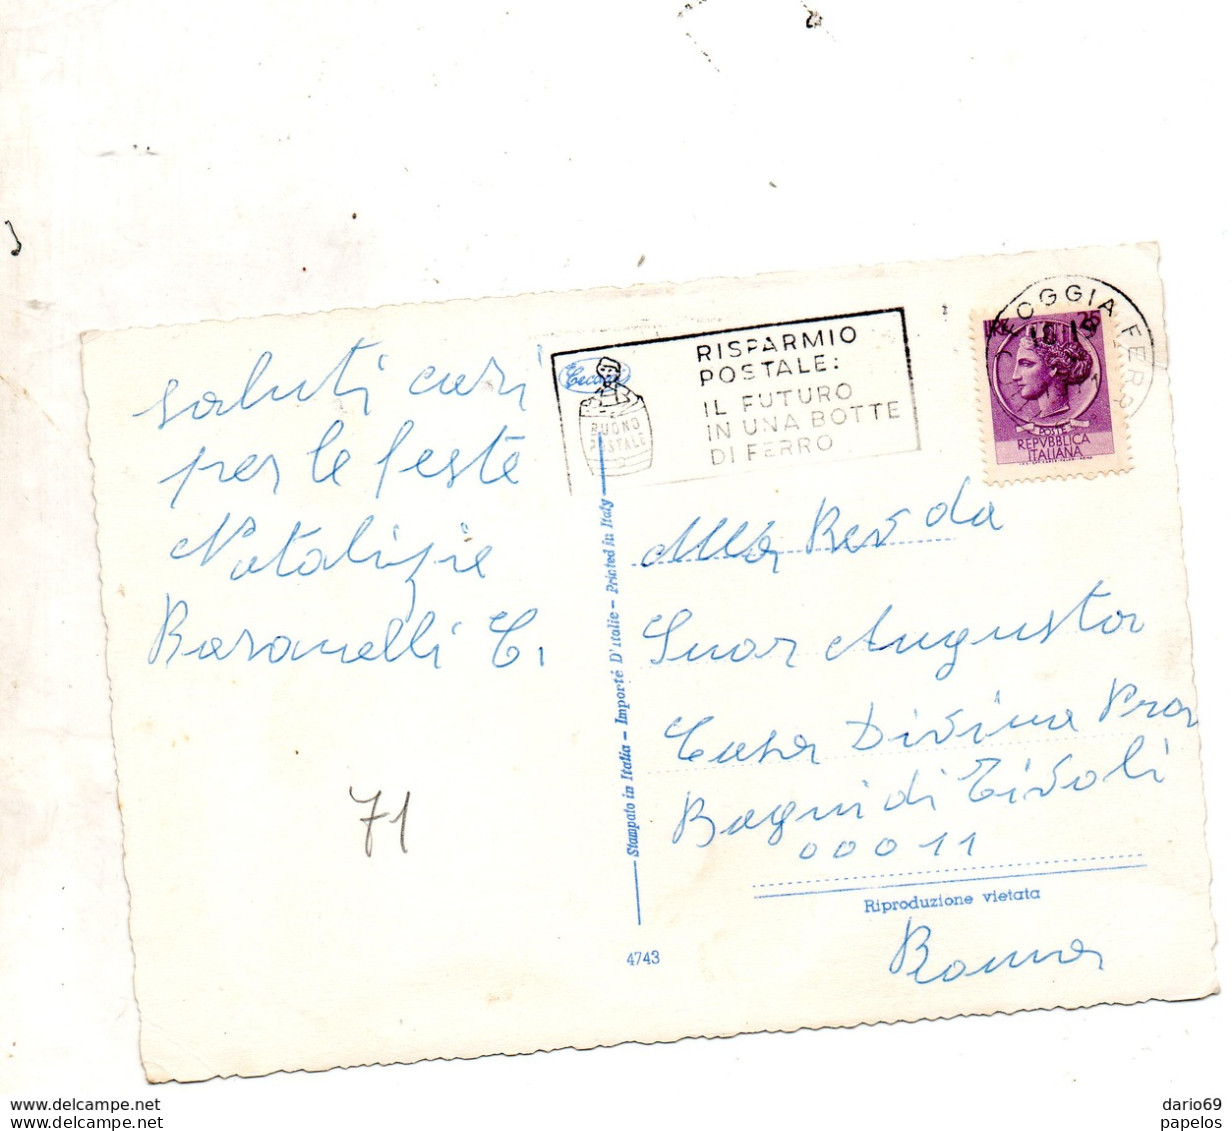 saluti cari
per le feste
Natalizie
Baranelli C.
71
Cecami
BUONO
POSTALE
RISPARMIO
POSTALE:
IL FUTURO
IN UNA BOTTE
DI FERRO
FOGGIA FERR
18 19
LIRE 25
POSTE
REPVBBLICA
ITALIANA
Alla Rev da
Suor Augusta
Casa Divina Prov
Bagni di Tivoli
00011
Roma
Stampato in Italia - Importé D'Italie - Printed in Italy
Riproduzione vietata
4743
www.delcampe.net
www.delcampe.net
dario69
papelos